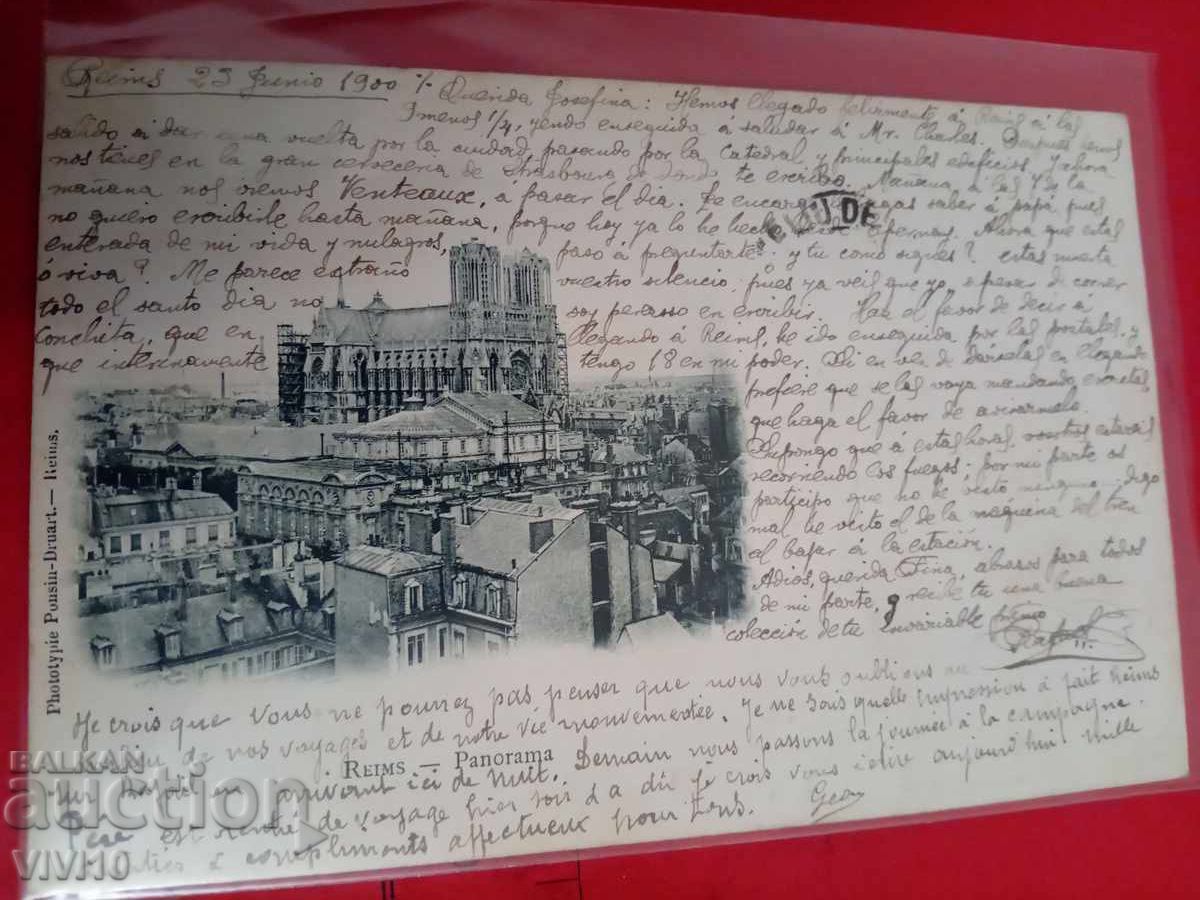 Reims 23 Junio 1900 Querida Josefina: Hemos llegado felizmente á Reims á las
7 menos 1/4, yendo enseguida á saludar á Mr. Charles. Despues hemos
salido á dar una vuelta por la ciudad, pasando por la Catedral y principales edificios. Y ahora
nos tienes en la gran cerveceria de Strasbourg de donde te escribo. Mañana á las 7 de la
mañana nos iremos Venteaux, á pasar el dia. Te encargo hagas saber á papá pues
no quiero escribirle hasta mañana, porque hoy ya lo he hecho Epernay. Ahora que estas
EMU DE
enterada de mi vida y milagros, paso á preguntarte: y tu como sigues? estas muerta
ó viva? Me parece extraño vuestro silencio, pues ya veis que yo, a pesar de correr
todo el santo dia no soy perezoso en escribir. Haz el favor de decir á
Conchita, que en llegando á Reims, he ido enseguida por las postales, y
que interinamente tengo 18 en mi poder. Si en vez de dárselas en llegando
prefiere que se las vaya mandando escritas,
que haga el favor de avisarmelo.
Supongo que a estas horas vosotros estareis
recorriendo los fuegos; por mi parte os
participo que no he visto ninguno. digo
mal he visto el de la máquina del tren
al bajar á la estación.
Adios, querida Fina, abrazos para todos
de mi parte, y recibe tu una buena
colección de tu invariable
Phototypie Ponsin-Druart. — Reims.
Je crois que vous ne pourrez pas penser que nous vous oublions au
milieu de nos voyages et de notre vie mouvementée. Je ne sais quelle impression á fait Reims
REIMS — Panorama
sur en arrivant ici de nuit. Demain nous passons la journée à la campagne.
Père est rentré de voyage hier soir il a dû je crois vous écrire aujourd'hui. Mille
compliments affectueux pour tous.
BALKAN
auction
VIVI10